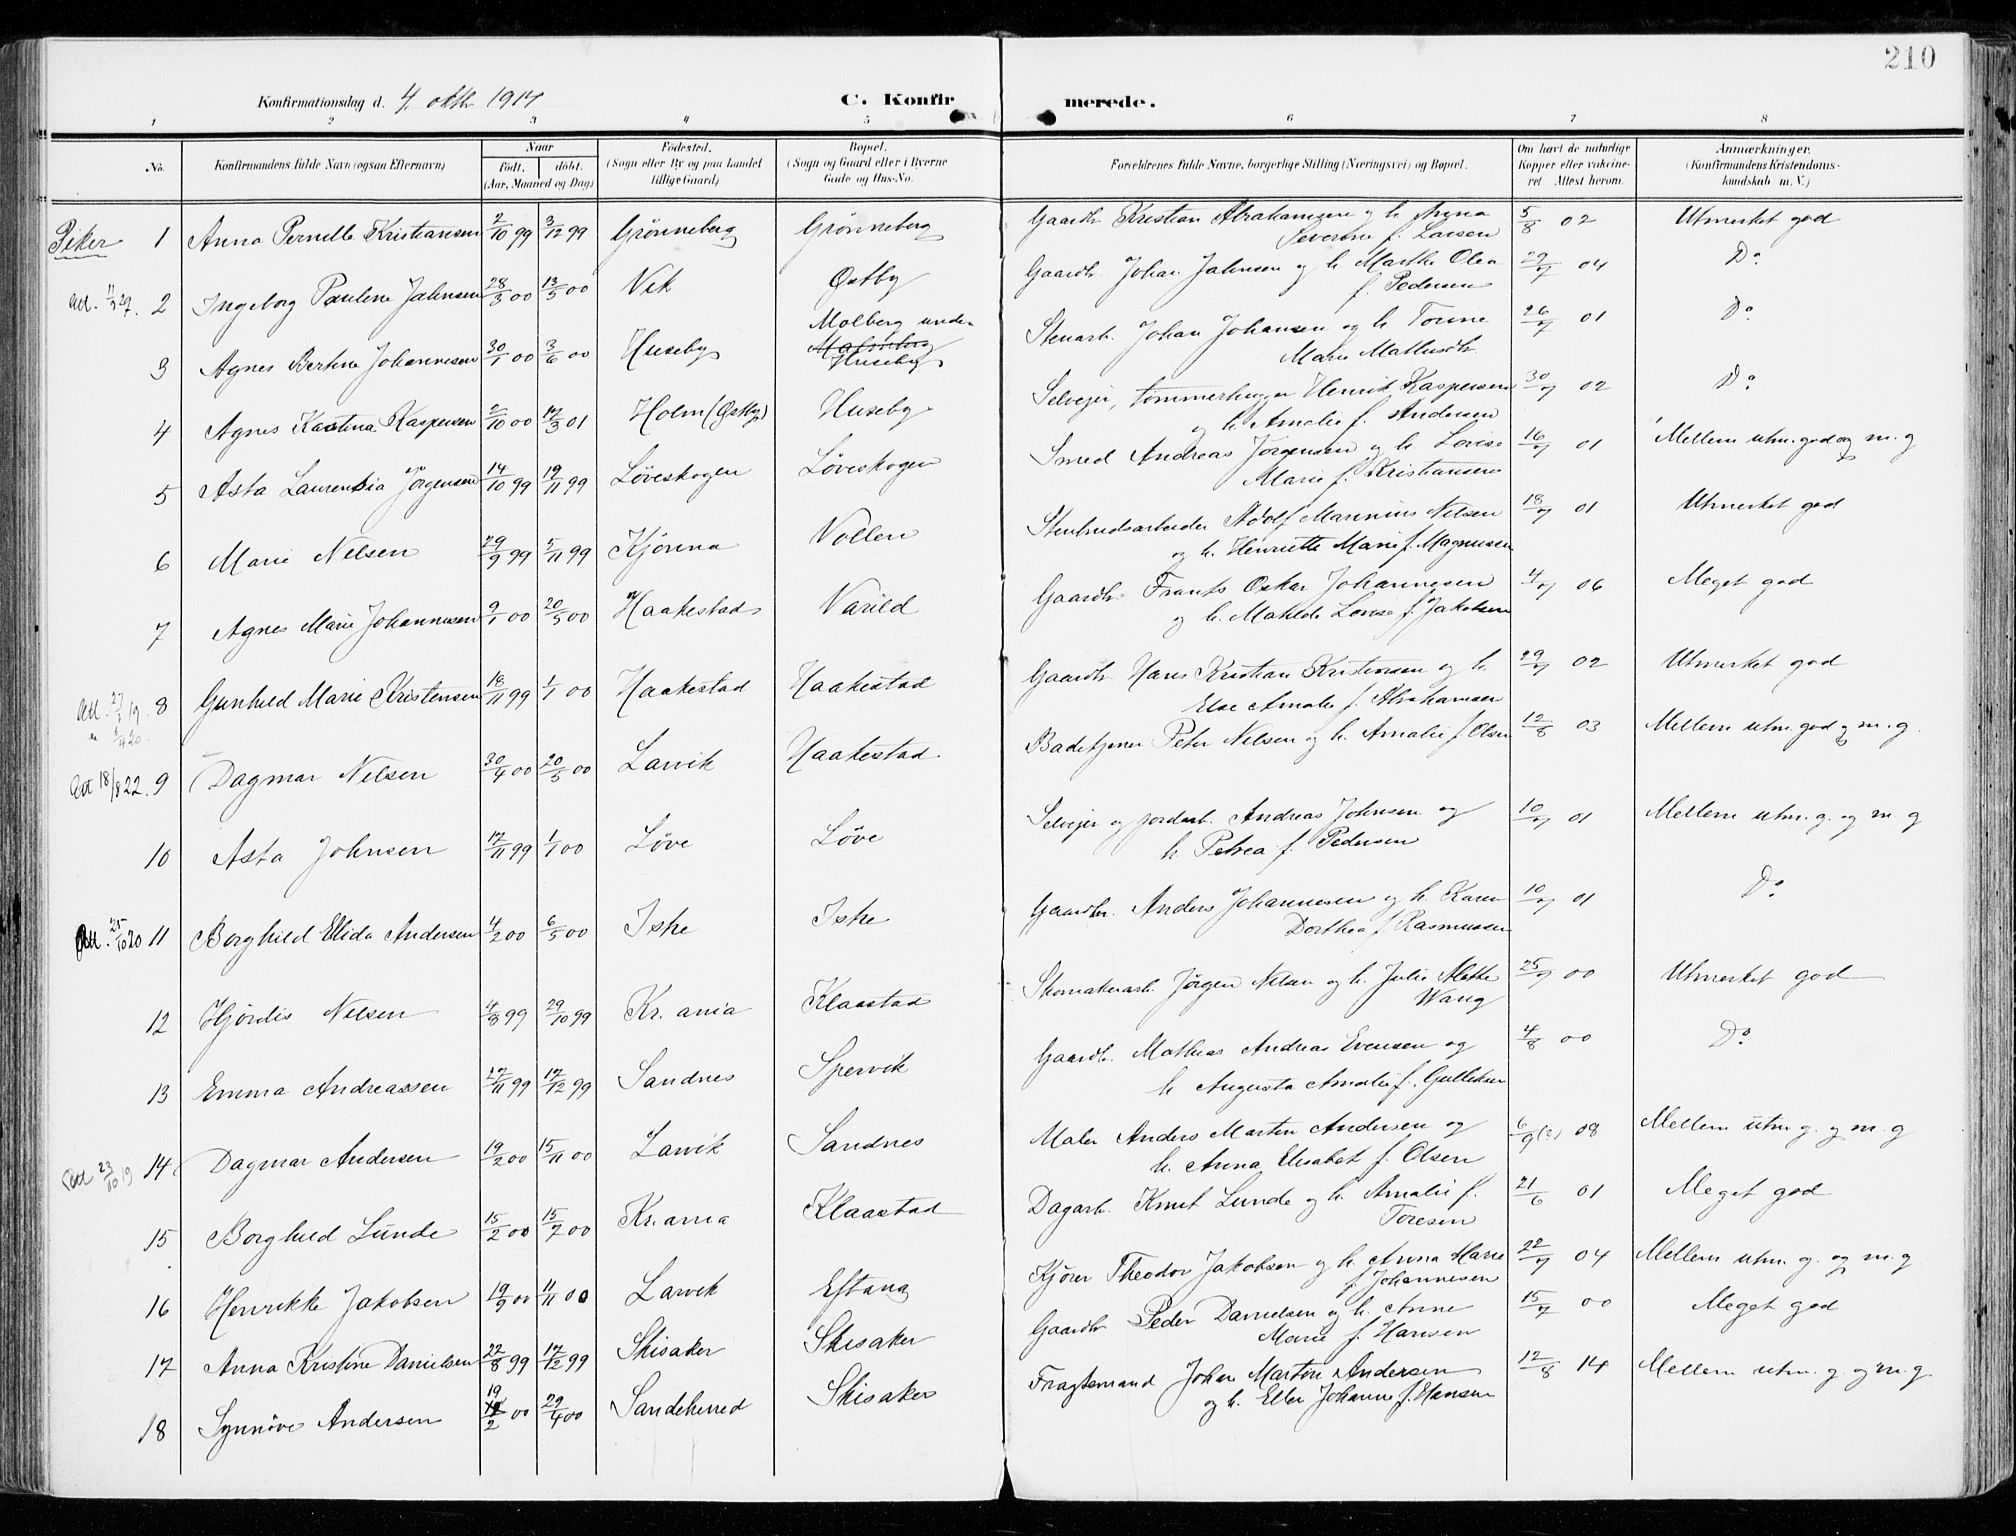 210
Konfirmationsdag d. 4. oktbr 1914 C. Konfirmerede.
1 2 3 4 5 6 7 8
No. Konfirmandens fulde Navn (ogsaa Efternavn) Naar Født. døbt. (Aar, Maaned og Dag) Fødested. (Sogn eller By og paa Landet tillige Gaard) Bopæl. (Sogn og Gaard eller i Byerne Gade og Hus-No. Forældrenes fulde Navne, borgerlige Stilling (Næringsvei) og Bopæl. Om havt de naturlige Kopper eller vakcineret Attest herom. Anmærkninger. (Konfirmandens Kristendomskundskab m. V.)
Piker 1 Anna Pernille Kristiansen 2/10 99 3/12 99 Grønneberg Grønneberg Gaardbr. Kristian Abrahamsen og h. Anna Severine f. Larsen 5/8 02 Utmerket god
Att. 11/3 27. 2 Ingeborg Pauline Jahnsen 28/3 00 13/5 00 Vik Østby Gaardbr. Johan Jahnsen og h. Marthe Olea f. Pedersen 29/7 04 Do
3 Agnes Bertine Johannesen 30/1 00 3/6 00 Huseby Molberg under Huseby Stenarb. Johan Johansen og h. Torine Marie Mathisdtr. 26/7 01 Do
4 Agnes Kastina Kaspersen 2/10 00 17/3 01 Holm (Østby) Huseby Selveier, tømmerhugger Henrik Kaspersen og h. Amalie f. Andersen 30/7 02 Do
5 Asta Laurensia Jörgensen 14/10 99 19/11 99 Løveskogen Løveskogen Smed Andreas Jörgensen og h. Lovise Marie f. Kristiansen 16/7 01 Mellem utm. god og m. g
6 Marie Nilsen 29/9 99 5/11 99 Kjönna Vollen Stenbrudsarbeider Adolf Marinius Nilsen og h. Henriette Marie f. Magnusen 18/7 01 Utmerket god
7 Agnes Marie Johannesen 9/1 00 20/5 00 Haakestad Varild Gaardbr. Frants Oskar Johannesen og h. Matilde Lovise f. Jakobsen 4/7 06 Meget god
Att. 27/3 19. 8 Gunhild Marie Kristensen 18/11 99 1/1 00 Haakestad Haakestad Gaardbr. Hans Kristian Kristensen og h. Else Amalie f. Abrahamsen 29/7 02 Utmerket god
Att 18/8 22. 9 Dagmar Nilsen 30/4 00 20/5 00 Larvik Haakestad. Badetjener Peter Nilsen og h. Amalie f. Olsen 12/8 03 Mellem utm. god og m. g.
10 Asta Johnsen 17/11 99 1/1 00 Løve Løve Selveier og jordarb. Andreas Johnsen og h. Petrea f. Pedersen 10/7 01 Mellem utm. g. og m g
Att. 25/10 20 11 Borghild Elida Andersen 4/2 00 6/5 00 Iske Iske Gaardbr. Anders Johannesen og h. Karen Dorthea f. Rasmussen 10/7 01 Do
12 Hjördis Nilsen 4/8 99 29/10 99 Kr.ania Klaastad Skomakerarb. Jörgen Nilsen og h. Julie Mathe Wang 25/7 00 Utmerket god
13 Emma Andreassen 17/11 99 17/12 99 Sandnes Spervik Gaardbr. Mathias Andreas Evensen og h. Augusta Amalie f. Gulliksen 4/8 00 Do
Att 23/10 19 14 Dagmar Andersen 19/2 00 15/11 00 Larvik Sandnes Maler Anders Martin Andersen og h. Anna Elisabet f. Olsen 6/9 (?) 08 Mellem utm. g. og m. g
15 Borghild Lunde 15/2 00 15/7 00 Kr.ania Klaastad Dagarb. Knut Lunde og h. Amalie f. Toresen 21/6 01 Meget god
16 Henrikke Jakobsen 19/9 00 11/11 00 Larvik Eftang Kjörer Theodor Jakobsen og h. Anna Marie f. Johannesen 22/7 04 Mellem utm. g. og m. g
17 Anna Kristine Danielsen 22/8 99 17/12 99 Skisaker Skisaker Gaardbr Peder Danielsen og h. Anne Marie f. Hansen 15/7 00 Meget god
18 Synnöve Andersen 19/2 00 29/4 00 Sandeherred Skisaker Fragtemand Johan Martin Andersen og h. Ellen Johanne f. Hansen 12/8 14 Mellem utm. g. og m. g